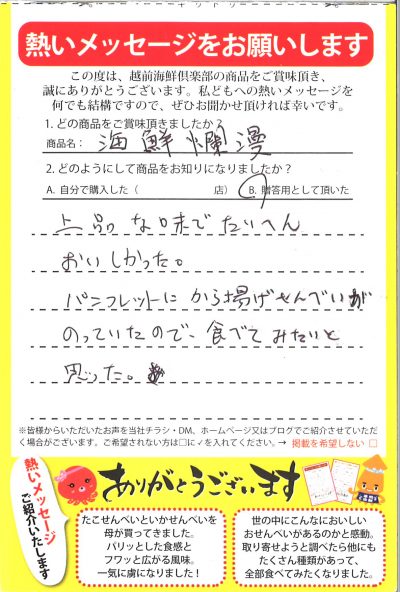 熱いメッセージをお願いします
この度は、越前海鮮倶楽部の商品をご賞味頂き、
誠にありがとうございます。私どもへの熱いメッセージを
何でも結構ですので、ぜひお聞かせ頂ければ幸いです。
1. どの商品をご賞味頂きましたか？
商品名： 海鮮爛漫
2. どのようにして商品をお知りになりましたか？
A. 自分で購入した（ 店） B. 贈答用として頂いた
上品な味でたいへん
おいしかった。
パンフレットにから揚げせんべいが
のっていたので、食べてみたいと
思った。
※皆様からいただいたお声を当社チラシ・DM、ホームページ又はブログでご紹介させていただ
く場合がございます。ご希望されない方は□に✓を入れてください。→ 掲載を希望しない □
熱いメッセージ
ご紹介いたします
ありがとうございます
たこせんべいといかせんべいを
母が買ってきました。
パリッとした食感と
フワッと広がる風味。
一気に虜になりました！
世の中にこんなにおいしい
おせんべいがあるのかと感動。
取り寄せようと調べたら他にも
たくさん種類があって、
全部食べてみたくなりました。